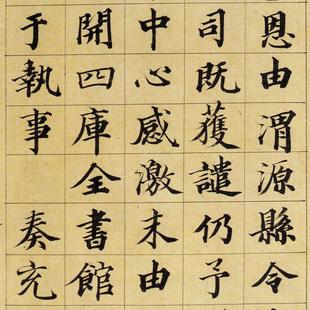 恩由渭源縣令
司既獲譴仍予
中心感激末由
開四庫全書館
于執事 奏充